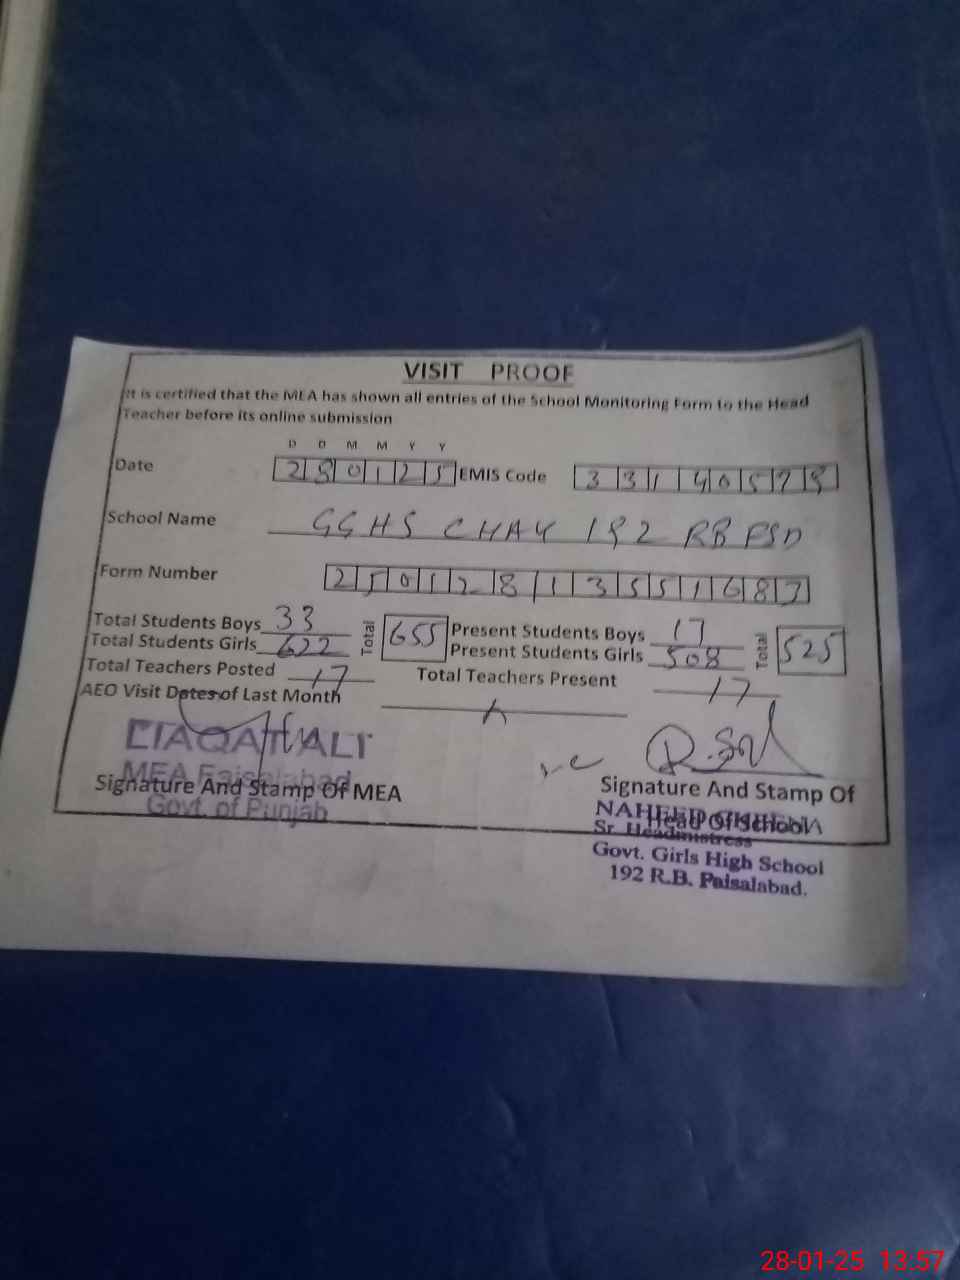 VISIT PROOF
It is certified that the MEA has shown all entries of the School Monitoring Form to the Head
Teacher before its online submission
D D M M Y Y
Date 280125 EMIS Code
School Name GGHS CHAK 192 RB FSD
Form Number 250128135516
Total Students Boys 33 Total 655 Present Students Boys 17 Total 525
Total Students Girls 622 Present Students Girls 508
Total Teachers Posted 17 Total Teachers Present 17
AEO Visit Dates of Last Month
LIAQAT ALI
MEA Faisalabad
Signature And Stamp Of MEA Signature And Stamp Of
Govt. of Punjab
NAHEED
Head Of School
Sr. Headmistress
Govt. Girls High School
192 R.B. Faisalabad.
28-01-25 13:57